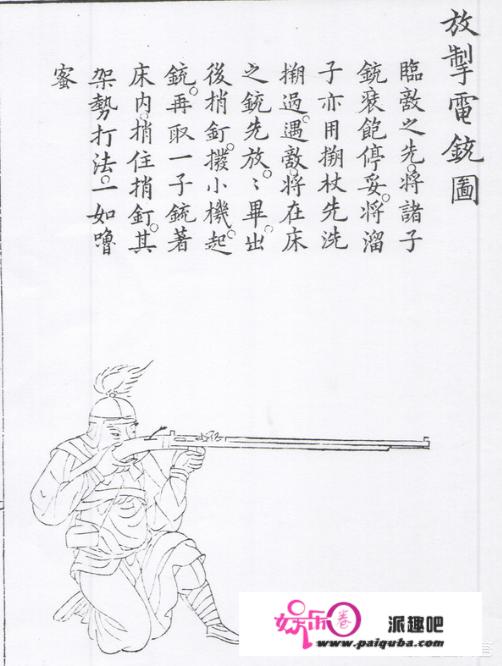 放掣電銃圖
臨敵之先。將諸子
銃裝飽停妥。將溜
子亦用搠杖先洗
搠過。遇敵。將在床
之銃先放。〻畢出
後捎釘。撥小機。起
銃。再取一子銃著
床內。捎住捎釘。其
架勢打法。一如嚕
蜜
娱乐卷
派趣吧
www.paiquba.com